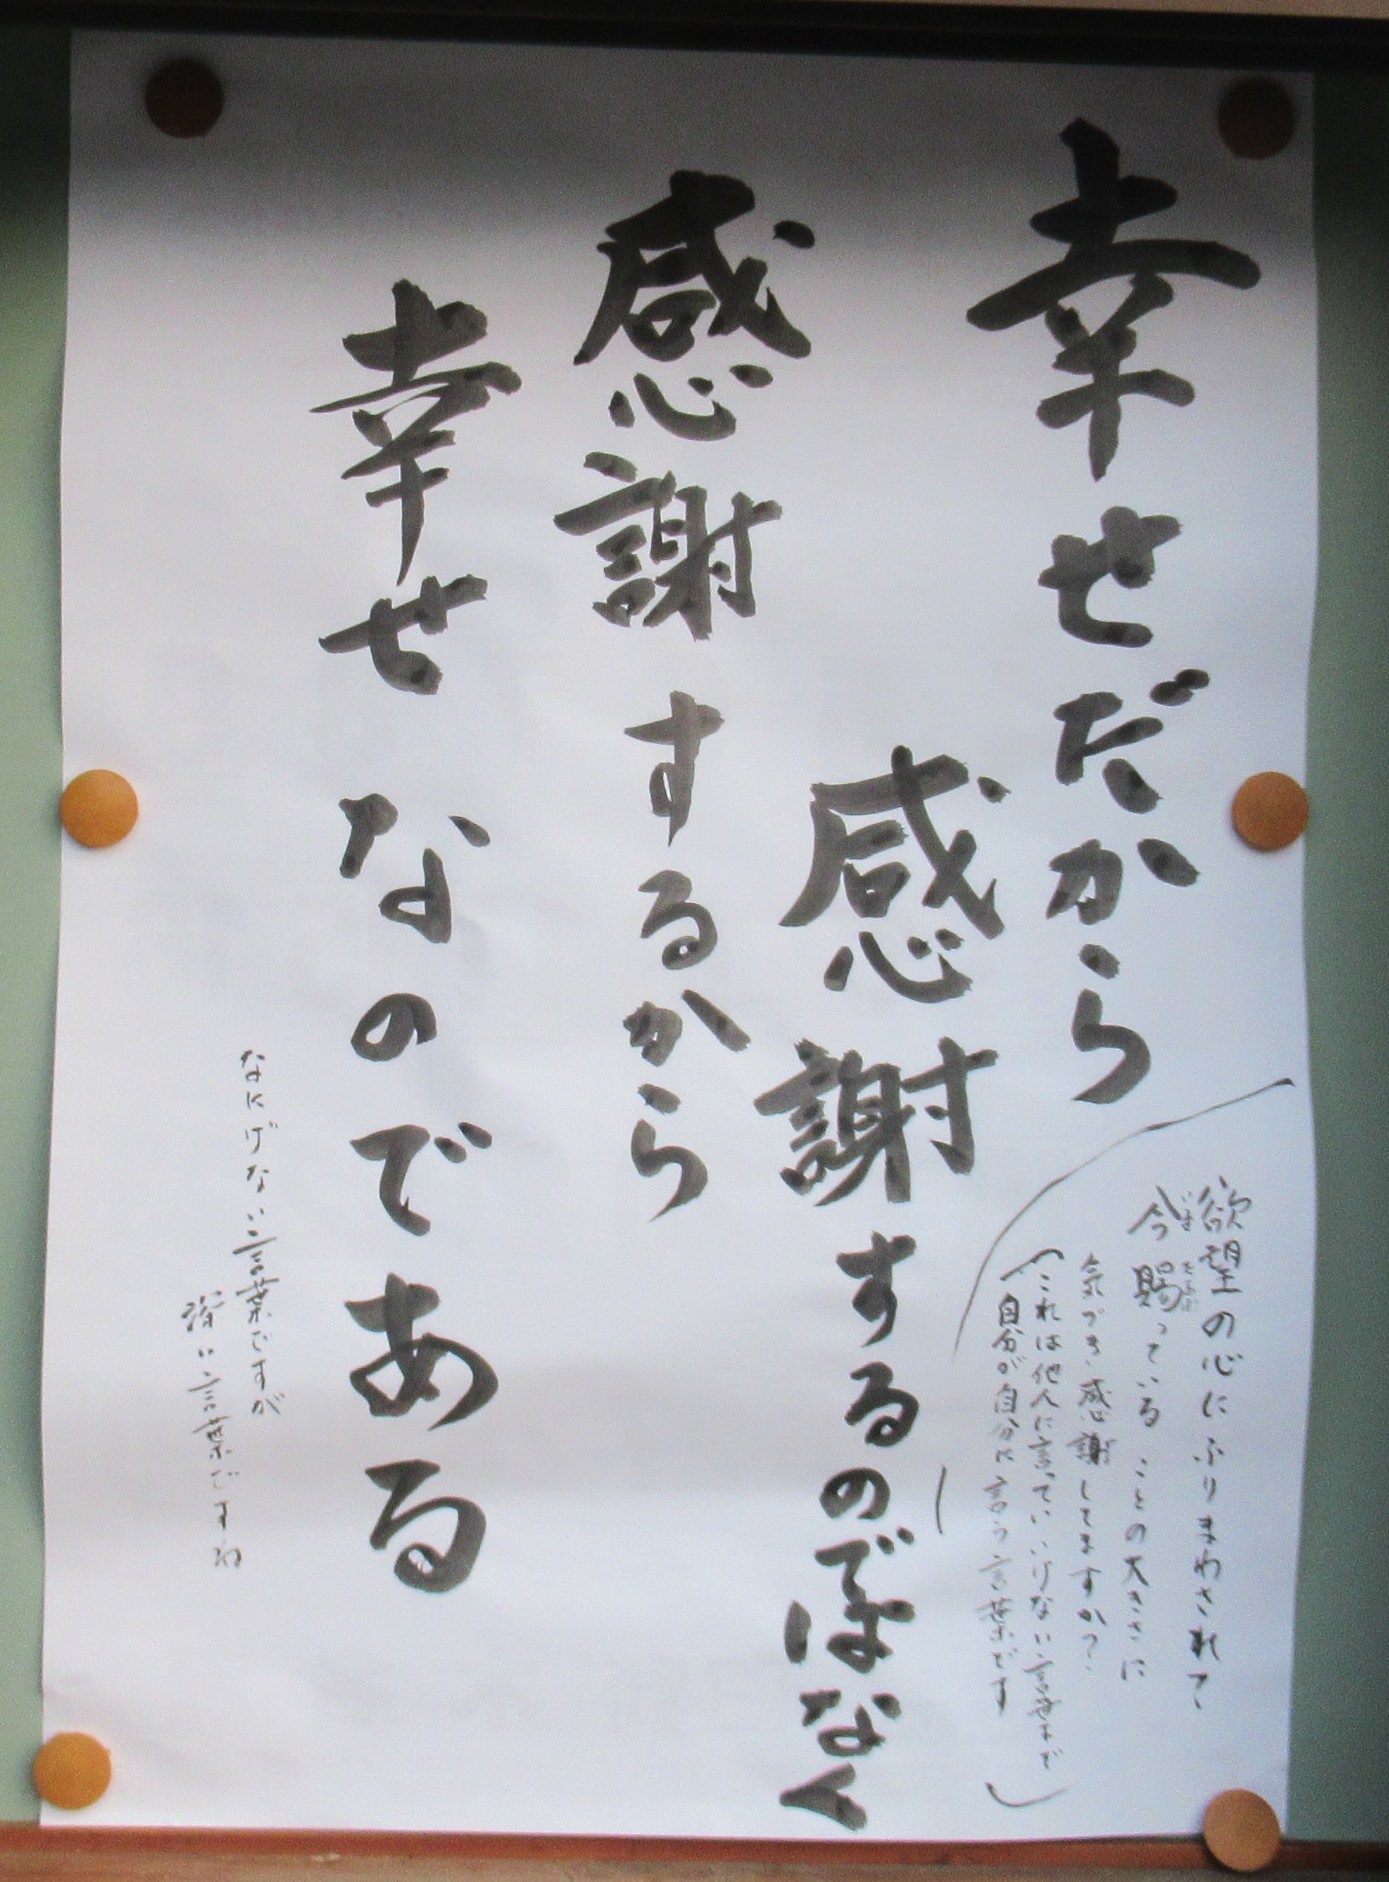 幸せだから
感謝するのではなく
感謝するから
幸せなのである
欲望の心にふりまわされて
今賜っていることの大きさに
気づき感謝してますか?
(これは他人に言っていけない言葉で
自分が自分に言う言葉です)
なにげない言葉ですが
深い言葉ですね